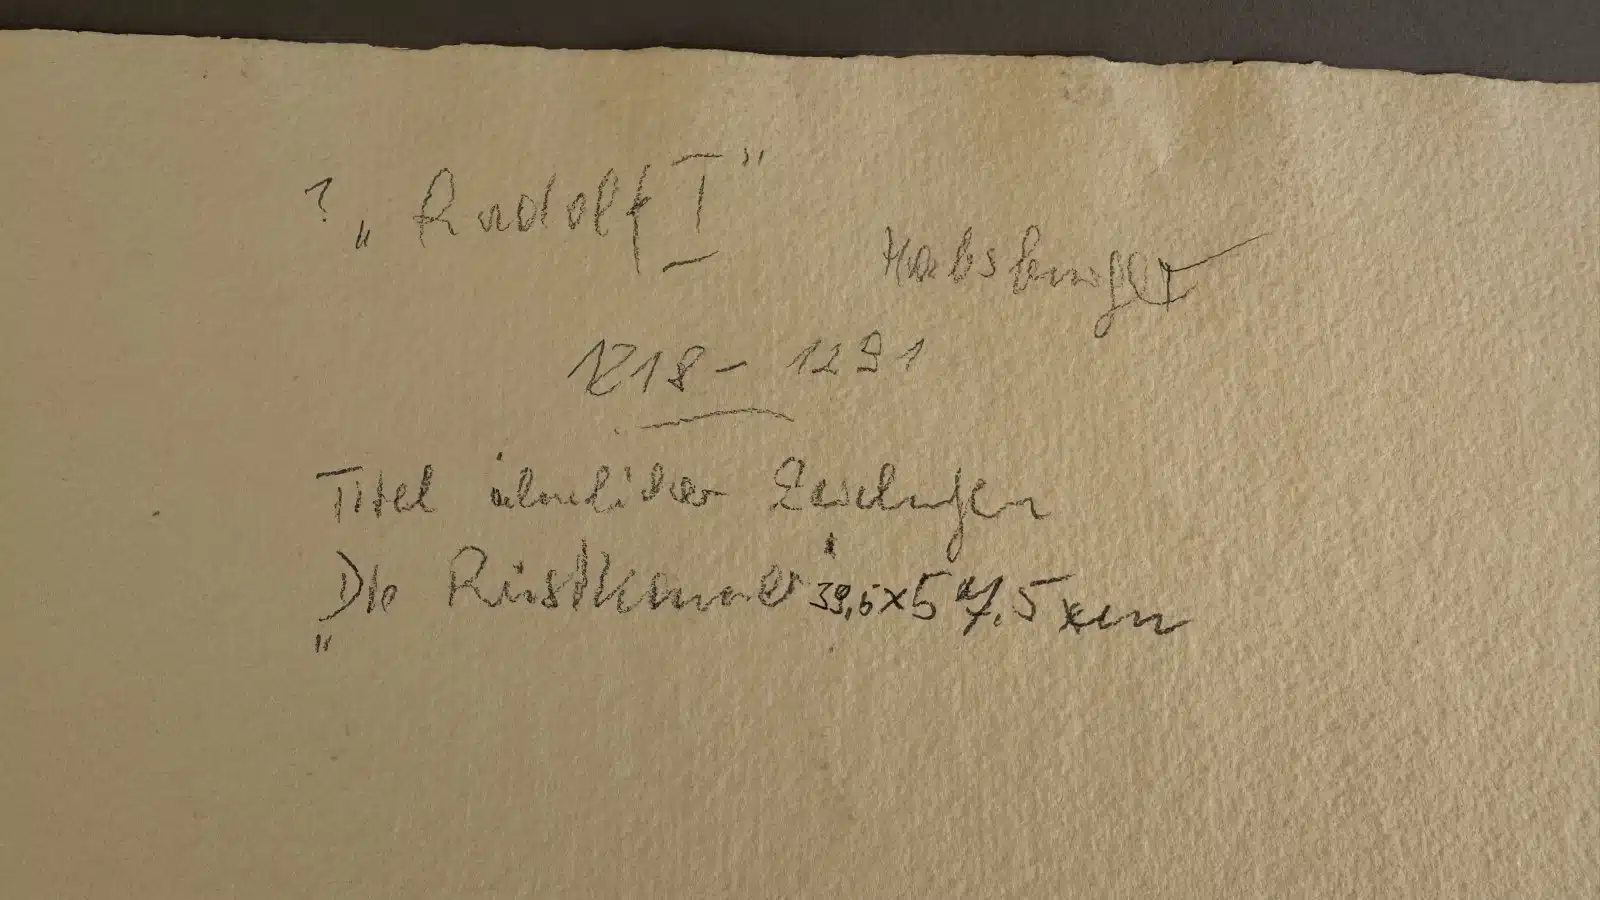 ? „Rudolf I"
Habsburger
1218 – 1291
Titel ähnlicher Zeichnungen
„Die Rüstkammer" 39,5 x 57,5 cm